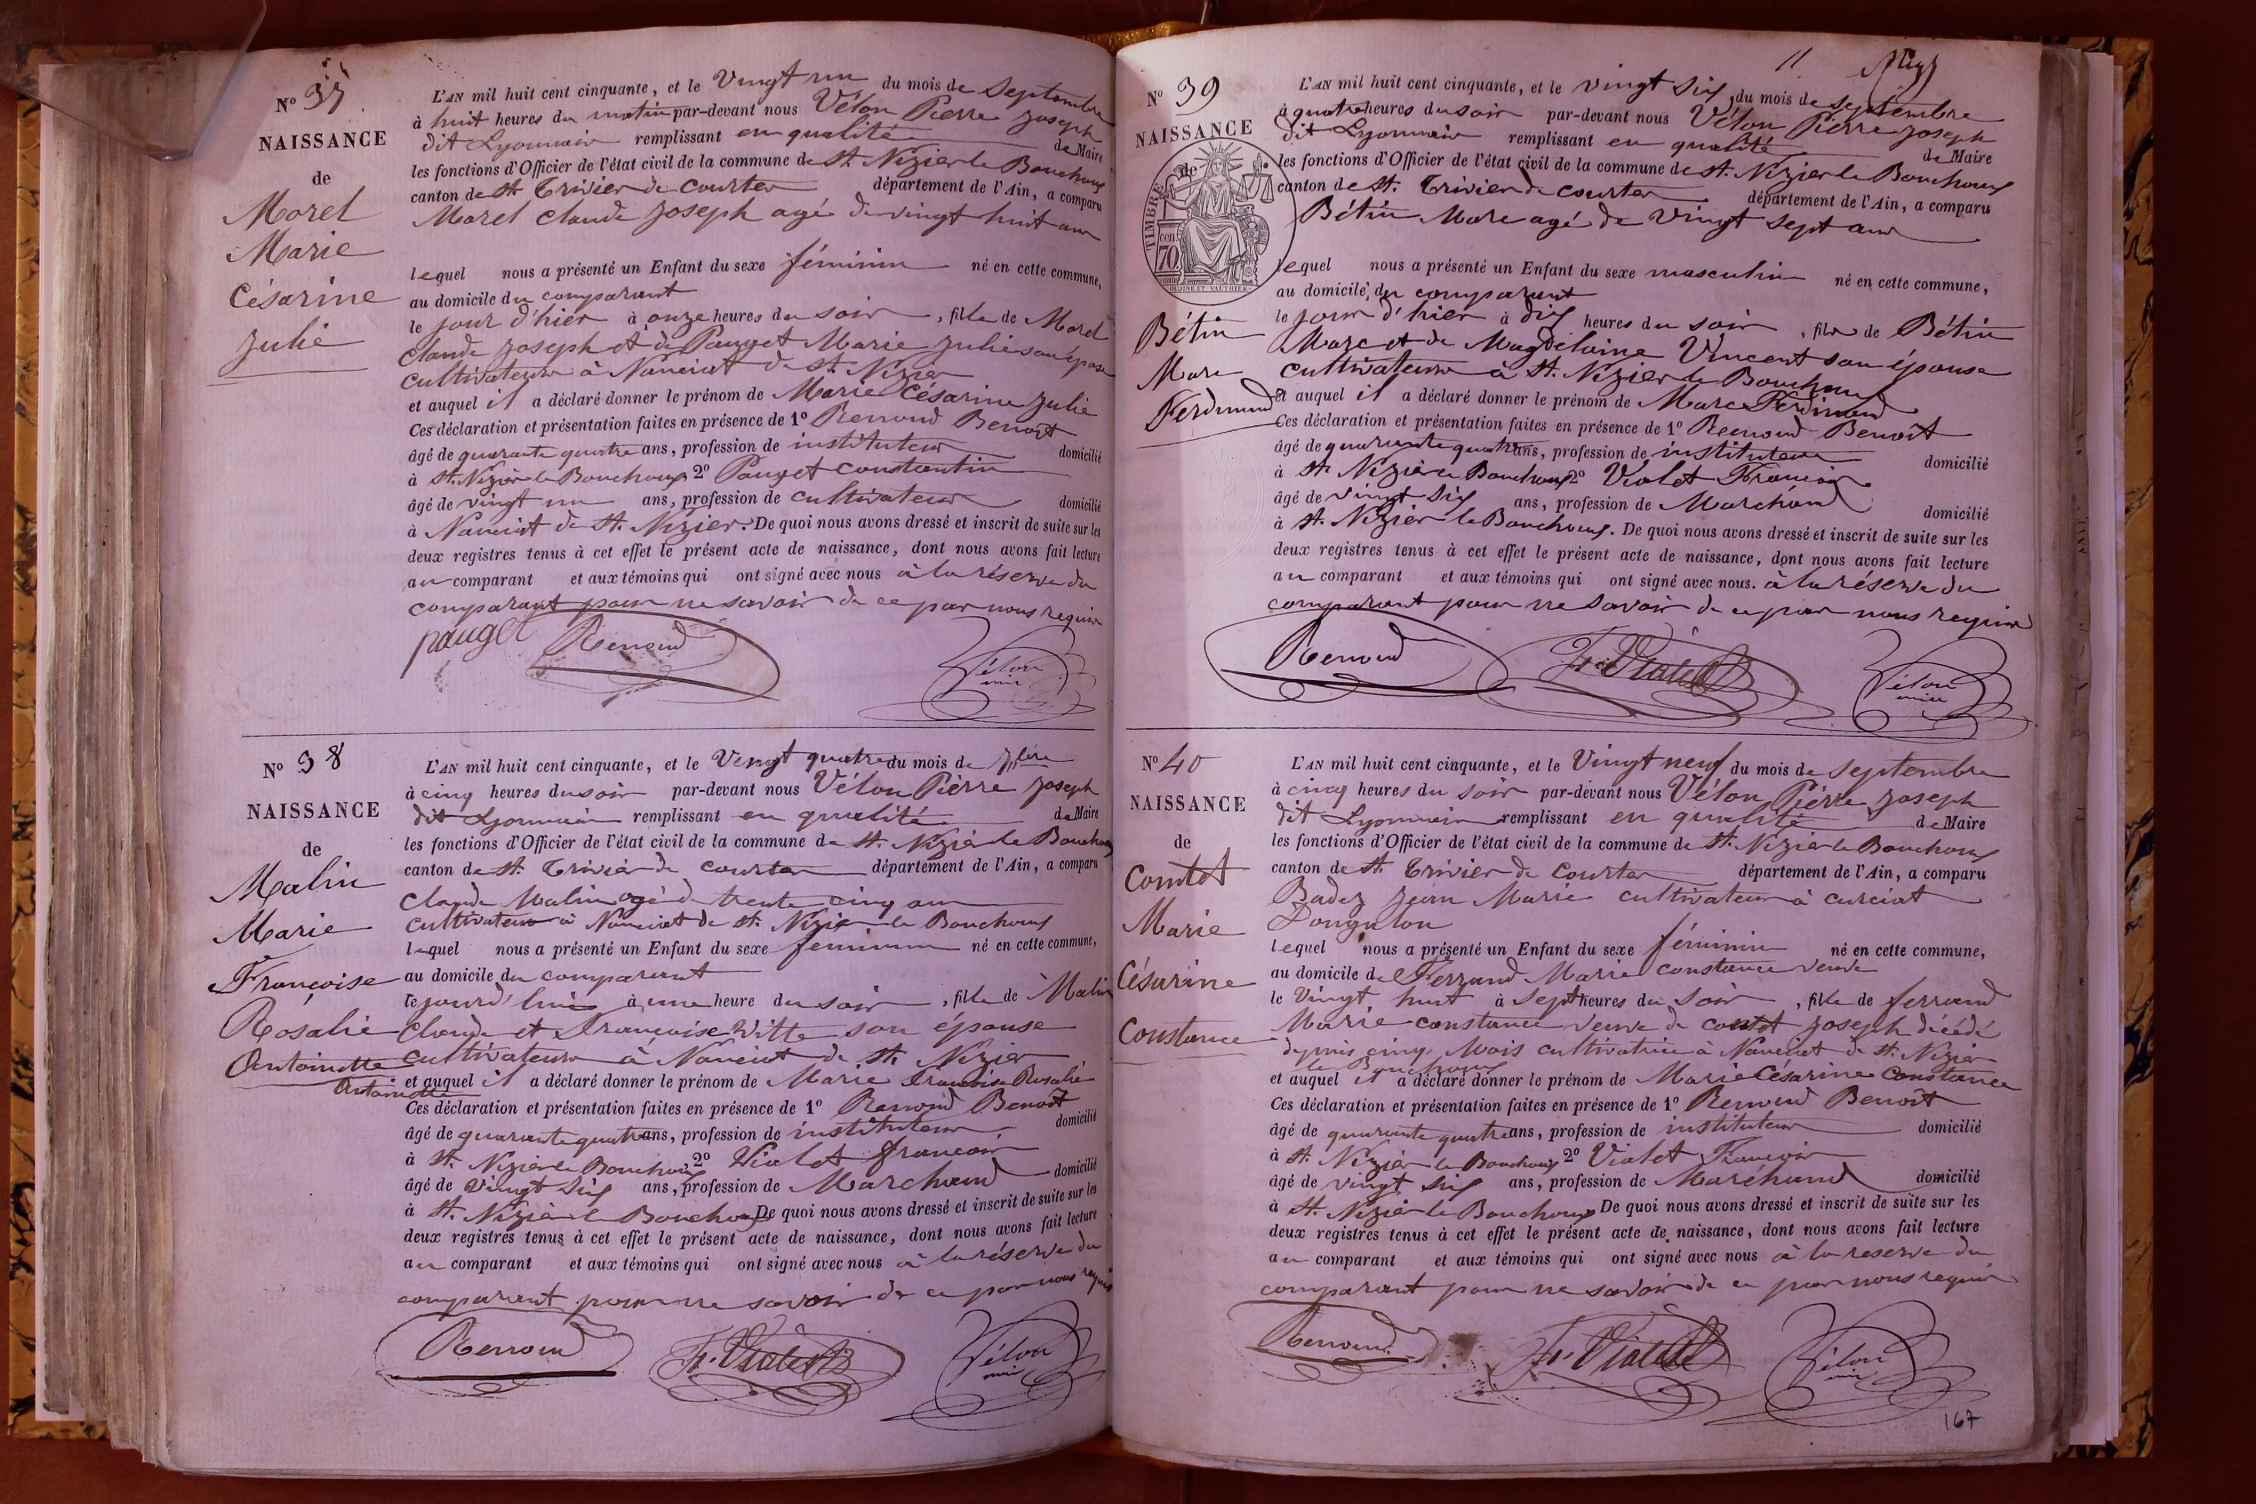 Nº 37
NAISSANCE
de
Morel
Marie
Césarine
Julie
L'AN mil huit cent cinquante, et le Vingt un du mois de Septembre
à huit heures du matin par-devant nous Vélon Pierre Joseph
dit Lyonnais remplissant en qualité de Maire
les fonctions d'Officier de l'état civil de la commune de St. Nizier le Bouchoux
canton de St. Trivier de Courtes département de l'Ain, a comparu
Morel Claude Joseph agé de vingt huit ans
lequel nous a présenté un Enfant du sexe féminin né en cette commune,
au domicile du comparant
le jour d'hier à onze heures du soir, fille de Morel
Claude Joseph et de Pauget Marie Julie son épouse
cultivateurs à Nanciat de St. Nizier
et auquel il a déclaré donner le prénom de Marie Césarine Julie
Ces déclaration et présentation faites en présence de 1º Renoud Benoît
âgé de quarante quatre ans, profession de instituteur domicilié
à St. Nizier le Bouchoux 2º Pauget Constantin
âgé de vingt un ans, profession de cultivateur domicilié
à Nanciat de St. Nizier. De quoi nous avons dressé et inscrit de suite sur les
deux registres tenus à cet effet le présent acte de naissance, dont nous avons fait lecture
au comparant et aux témoins qui ont signé avec nous à la réserve du
comparant pour ne savoir de ce par nous requis
pauget Renoud Vélon
Nº 38
NAISSANCE
de
Malin
Marie
Françoise
Rosalie
Antoinette
L'AN mil huit cent cinquante, et le Vingt quatre du mois de 7bre
à cinq heures du soir par-devant nous Vélon Pierre Joseph
dit Lyonnais remplissant en qualité de Maire
les fonctions d'Officier de l'état civil de la commune de St. Nizier le Bouchoux
canton de St. Trivier de Courtes département de l'Ain, a comparu
Claude Malin agé de trente cinq ans
cultivateur à Nanciat de St. Nizier le Bouchoux
lequel nous a présenté un Enfant du sexe féminin né en cette commune,
au domicile du comparant
le jourd'hui à une heure du soir, fille de Malin
Claude et Françoise Vitte son épouse
cultivateurs à Nanciat de St. Nizier
et auquel il a déclaré donner le prénom de Marie Françoise Rosalie
Antoinette
Ces déclaration et présentation faites en présence de 1º Renoud Benoît
âgé de quarante quatre ans, profession de instituteur domicilié
à St. Nizier le Bouchoux 2º Violet François
âgé de vingt six ans, profession de Marchand domicilié
à St. Nizier le Bouchoux De quoi nous avons dressé et inscrit de suite sur les
deux registres tenus à cet effet le présent acte de naissance, dont nous avons fait lecture
au comparant et aux témoins qui ont signé avec nous à la réserve du
comparant pour ne savoir de ce par nous requis
Renoud Fr. Violet Vélon
11
Nº 39
NAISSANCE
de
TIMBRE
70
Bétin
Marc
Ferdinand
L'AN mil huit cent cinquante, et le vingt six du mois de septembre
à quatre heures du soir par-devant nous Vélon Pierre Joseph
dit Lyonnais remplissant en qualité de Maire
les fonctions d'Officier de l'état civil de la commune de St. Nizier le Bouchoux
canton de St. Trivier de Courtes département de l'Ain, a comparu
Bétin Marc agé de vingt sept ans
lequel nous a présenté un Enfant du sexe masculin né en cette commune,
au domicile du comparant
le jour d'hier à dix heures du soir, fils de Bétin
Marc et de Magdelaine Vincent son épouse
cultivateurs à St. Nizier le Bouchoux
et auquel il a déclaré donner le prénom de Marc Ferdinand
Ces déclaration et présentation faites en présence de 1º Renoud Benoît
âgé de quarante quatre ans, profession de instituteur domicilié
à St. Nizier le Bouchoux 2º Violet François
âgé de vingt six ans, profession de Marchand domicilié
à St. Nizier le Bouchoux. De quoi nous avons dressé et inscrit de suite sur les
deux registres tenus à cet effet le présent acte de naissance, dont nous avons fait lecture
au comparant et aux témoins qui ont signé avec nous. à la réserve du
comparant pour ne savoir de ce par nous requis
Renoud Fr. Violet Vélon
Nº 40
NAISSANCE
de
Comtet
Marie
Césarine
Constance
L'AN mil huit cent cinquante, et le Vingt neuf du mois de septembre
à cinq heures du soir par-devant nous Vélon Pierre Joseph
dit Lyonnais remplissant en qualité de Maire
les fonctions d'Officier de l'état civil de la commune de St. Nizier le Bouchoux
canton de St. Trivier de Courtes département de l'Ain, a comparu
Badez Jean Marie cultivateur à curciat
Dongalon
lequel nous a présenté un Enfant du sexe féminin né en cette commune,
au domicile de Ferrand Marie Constance veuve
le Vingt huit à sept heures du soir, fille de ferrand
Marie Constance veuve de Joseph décédé
depuis cinq Mois cultivatrice à Nanciat de St. Nizier
le Bouchoux
et auquel il a déclaré donner le prénom de Marie Césarine Constance
Ces déclaration et présentation faites en présence de 1º Renoud Benoît
âgé de quarante quatre ans, profession de instituteur domicilié
à St. Nizier le Bouchoux 2º Violet François
âgé de vingt six ans, profession de Marchand domicilié
à St. Nizier le Bouchoux De quoi nous avons dressé et inscrit de suite sur les
deux registres tenus à cet effet le présent acte de naissance, dont nous avons fait lecture
au comparant et aux témoins qui ont signé avec nous à la reserve du
comparant pour ne savoir de ce par nous requis
Renoud Fr. Violet Vélon
167